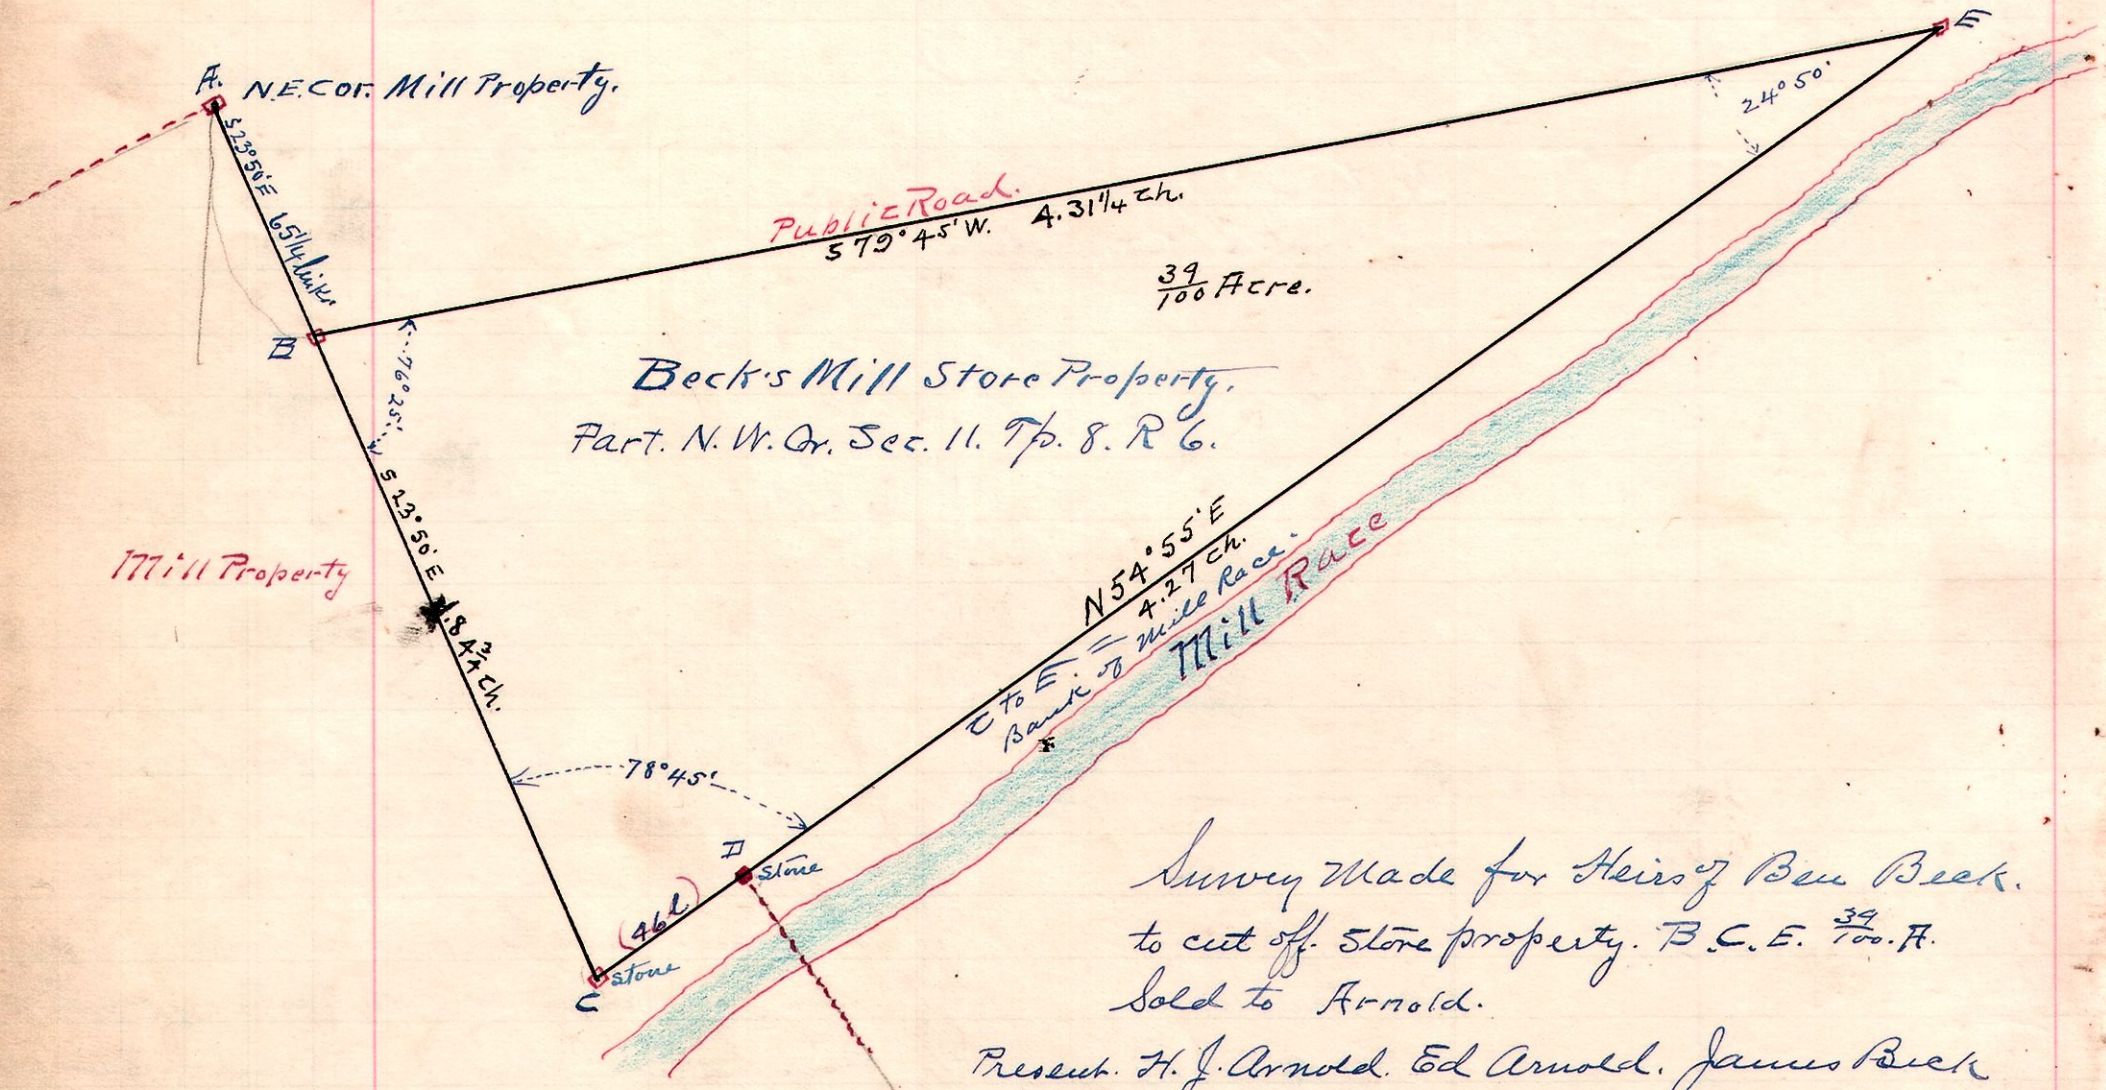 E
A. N.E. Cor. Mill Property.
24° 50'
S 23° 50' E 65 1/4 links
Public Road.
S 79° 45' W. 4.31 1/4 ch.
39/100 Acre.
B
76° 25'
Beck's Mill Store Property.
Part. N. W. Qr. Sec. 11. Tp. 8. R 6.
S 23° 50' E 1.84 3/4 ch.
Mill Property
N 54° 55' E
4.27 ch.
C to E. = 
Bank of Mill Race.
Mill Race
78° 45'
D
Stone
(46 l)
Stone
C
Survey Made for Heirs of Ben Beck.
to cut off. Store property. B.C.E. 39/100. A.
Sold to Arnold.
Present. H. J. Arnold. Ed Arnold. James Beck